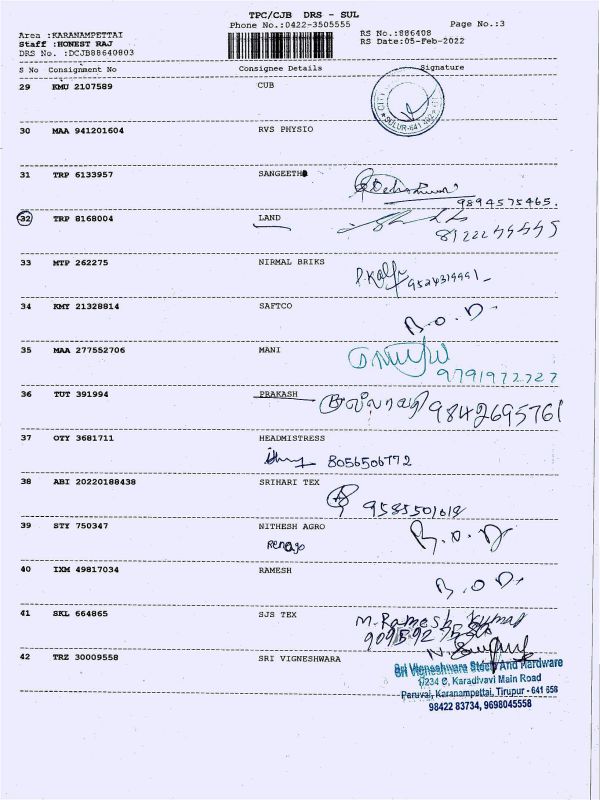 TPC/CJB DRS - SUL
Phone No.:0422-3505555
Page No.:3
Area :KARANAMPETTAI
Staff :HONEST RAJ
DRS No. :DCJB88640803
RS No.:886408
RS Date:05-Feb-2022
S No Consignment No Consignee Details Signature
29 KMU 2107589 CUB
SULUR-641 402
30 MAA 941201604 RVS PHYSIO
31 TRP 6133957 SANGEETHA
9894575465.
32 TRP 8168004 LAND
8122244445
33 MTP 262275 NIRMAL BRIKS
9524319991
34 KMY 21328814 SAFTCO
R.O.D.
35 MAA 277552706 MANI
9791972727
36 TUT 391994 PRAKASH
9842695761
37 OTY 3681711 HEADMISTRESS
8056506772
38 ABI 20220188438 SRIHARI TEX
9585501018
39 STY 750347 NITHESH AGRO
R.O.D.
40 IXM 49817034 RAMESH
R.O.D.
41 SKL 664865 SJS TEX
M. Ramesh kumar
42 TRZ 30009558 SRI VIGNESHWARA
Sri Vigneshwara Steels And Hardware
1/234 C, Karadivavi Main Road
Paruvai, Karanampettai, Tirupur - 641 658
98422 83734, 9698045558